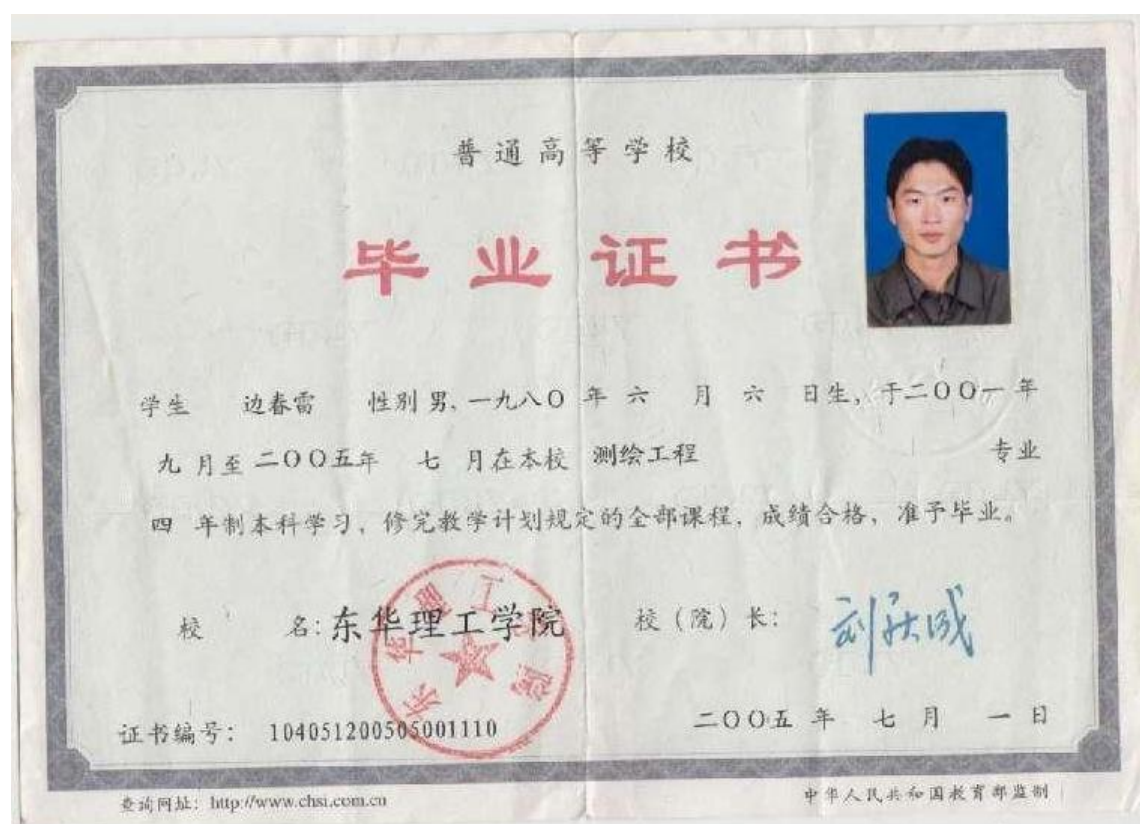 普通高等学校
毕业证书
学生 边春雷 性别 男,一九八〇年 六 月 六 日生,于二〇〇一年
九 月至 二〇〇五年 七 月在本校 测绘工程 专业
四 年制本科学习,修完教学计划规定的全部课程,成绩合格,准予毕业。
校 名:东华理工学院 校(院)长:
东华理工学院
证书编号: 104051200505001110 二〇〇五 年 七 月 一 日
查询网址: http://www.chsi.com.cn 中华人民共和国教育部监制